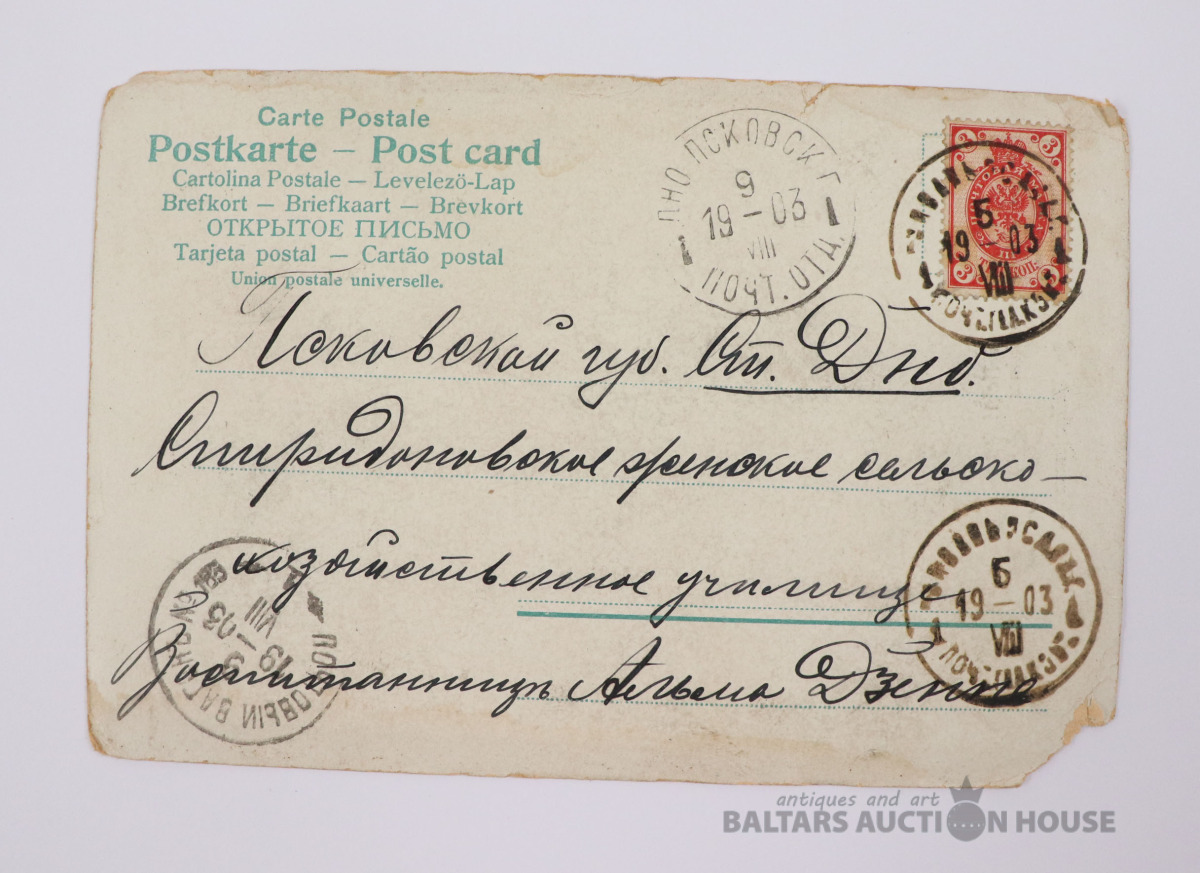 Carte Postale
Postkarte – Post card
Cartolina Postale — Levelezö-Lap
Brefkort — Briefkaart — Brevkort
ОТКРЫТОЕ ПИСЬМО
Tarjeta postal — Cartão postal
Union postale universelle.
ДНО ПСКОВСК Г.
9
19–03
VIII
1 1
ПОЧТ. ОТД.
3 3
3 3
5
19–03
VIII
1 1
Псковской губ. Ст. Дно.
Спиридоновское женское сельско-
хозяйственное училище
Воспитанницѣ Альма Дзенне
5
19–03
VIII
1
ПОЧТОВЫЙ ВАГОНЪ
9
19–03
VIII
antiques and art
BALTARS AUCTION HOUSE